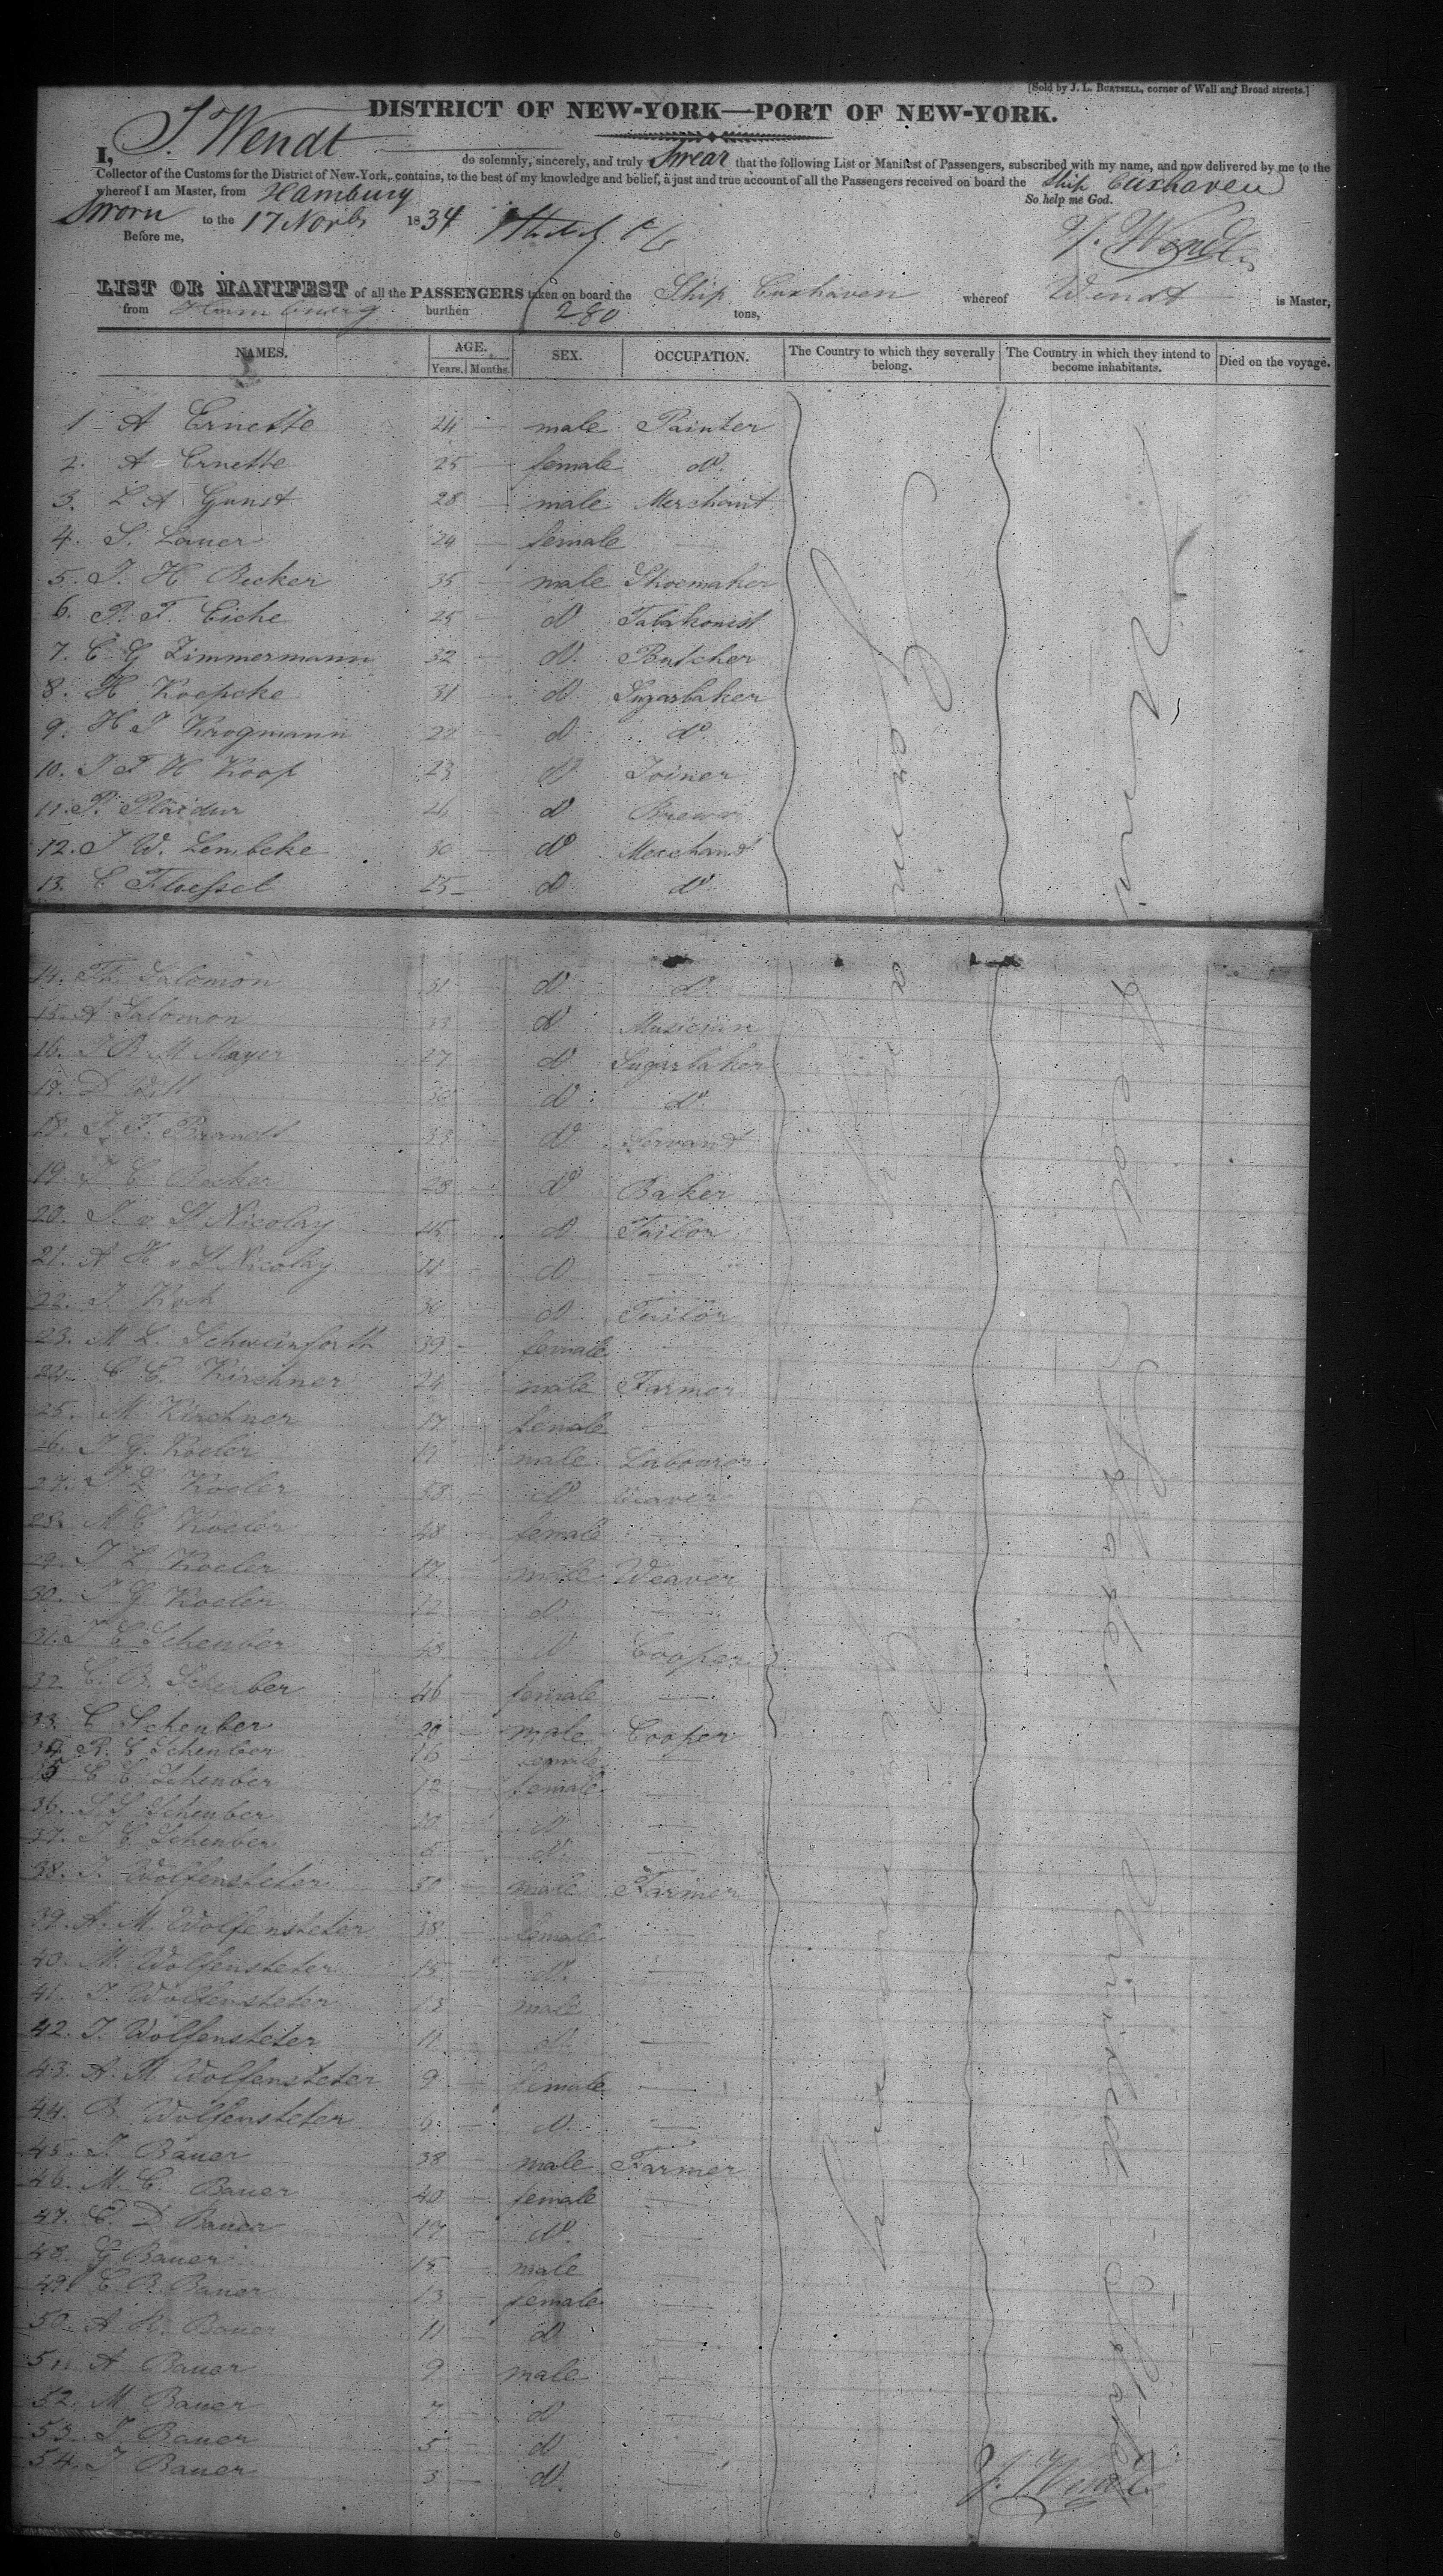 [Sold by J. L. BURTSELL, corner of Wall and Broad streets.]
DISTRICT OF NEW-YORK—PORT OF NEW-YORK.
I, J. Wendt do solemnly, sincerely, and truly Swear that the following List or Manifest of Passengers, subscribed with my name, and now delivered by me to the
Collector of the Customs for the District of New-York, contains, to the best of my knowledge and belief, a just and true account of all the Passengers received on board the Ship Cuxhaven
whereof I am Master, from Hamburg So help me God.
Sworn to the 17 Novbr 1834
Before me, J. Wendt
LIST OR MANIFEST of all the PASSENGERS taken on board the Ship Cuxhaven whereof Wendt is Master,
from Hamburg burthen 280 tons,
NAMES. AGE. SEX. OCCUPATION. The Country to which they severally belong. The Country in which they intend to become inhabitants. Died on the voyage.
Years. Months.
1 A Ernette 24 — male Painter
2. A Ernette 25 — female do
3. L A Gunst 28 — male Merchant
4. S. Lauer 24 — female —
5. J. H Becker 35 — male Shoemaker
6. P. F. Eiche 25 — do Tabakonist
7. C G Zimmermann 32 — do Butcher
8. H Koepcke 31 — do Sugarbaker
9. H J Krogmann 22 — do do
10. J F H Koop 23 — do Joiner
11. P. 26 — do Brewer
12. J W. Lembcke 30 — do Merchant
13. C Floessel 25 — do do
14. Th. Salomon 31 do do
15. A Salomon 33 do Musician
16. J B M Mayer 27 do Sugarbaker
17. D Will 36 do do
18. J. F. Brandt 33 do Servant
19. J C Becker 28 do Baker
20. J. v. S Nicolay 45 do Tailor
21. A H v S Nicolay 11 do —
22. J. Koch 30 do Tailor
23. M L. Schweinforth 39 — female —
24. C C. Kirchner 24 male Farmer
25. M Kirchner 17 female —
26. J G. Koeler 19 male Labourer
27. J C Koeler 58 do Weaver
28. M C Koeler 48 female —
29. J L Koeler 17 male Weaver
30. J G Koeler 12 do —
31. J C Scheuber 48 do Cooper
32 C. B. Scheuber 46 female —
33. C Scheuber 20 male Cooper
34 R. C Scheuber 16 female —
35 C C Scheuber 12 female —
36. S S Scheuber 10 do —
37. J C Scheuber 5 do —
38. J. Wolfensteter 30 male Farmer
39. A. M. Wolfensteter 38 female —
40. M. Wolfensteter 15 do —
41. J. Wolfensteter 13 male
42. J. Wolfensteter 11 do —
43. A. M Wolfensteter 9 female —
44. B. Wolfensteter 6 do —
45. J Bauer 38 male Farmer
46. M. C. Bauer 40 female —
47. E. D Bauer 17 do —
48. G Bauer 15 male —
49. C. B. Bauer 13 female —
50. A R. Bauer 11 do —
51. A Bauer 9 male —
52. M Bauer 7 do —
53. J Bauer 5 do —
54. J Bauer 3 do —
Germany
Germany
United States
United States
J. Wendt